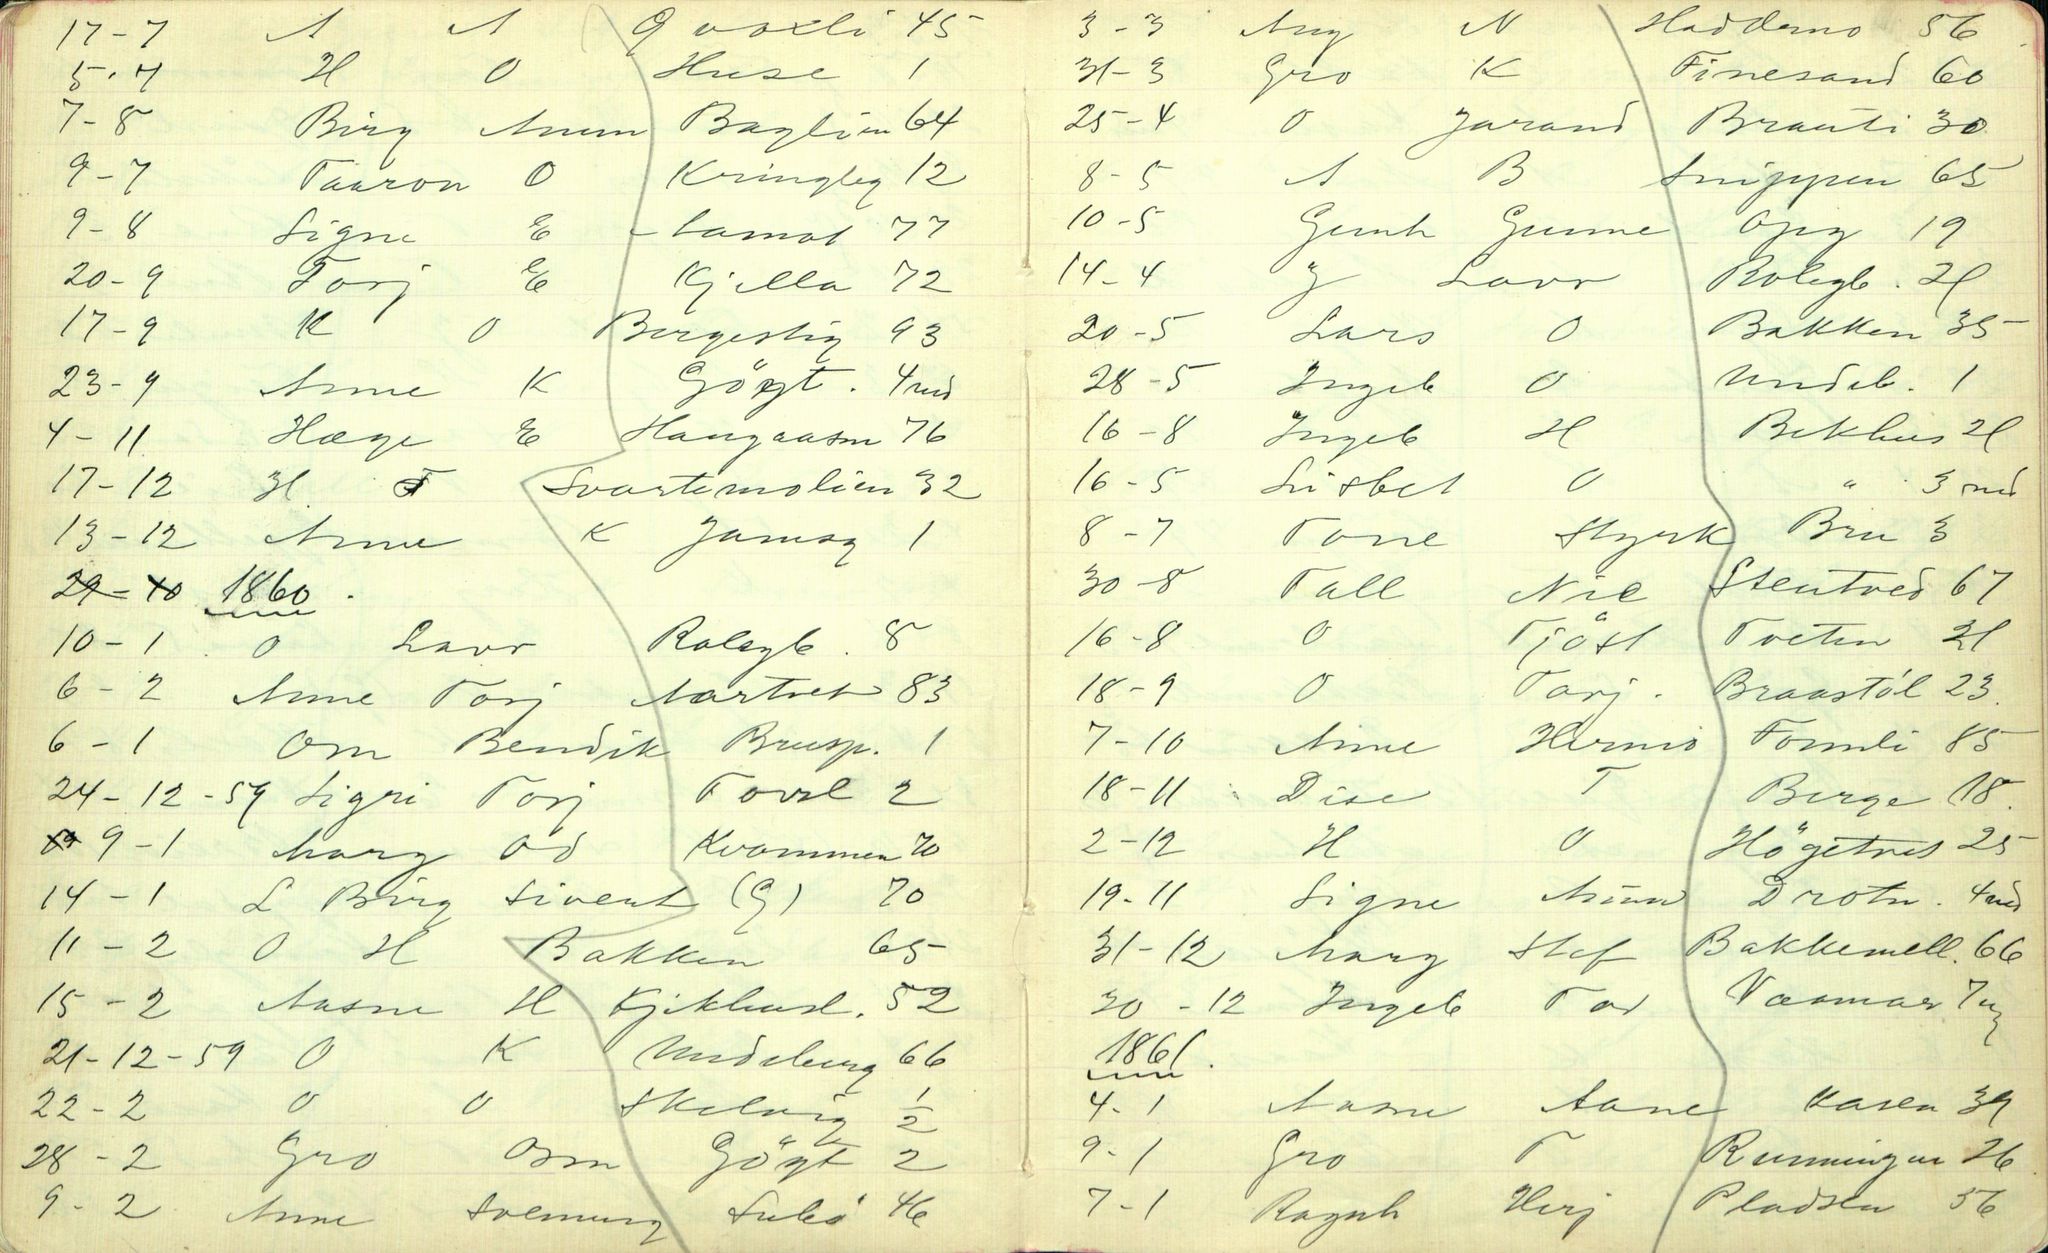 17-7 A A Qvaxli 45
5-7 H O Huse 1
7-8 Birg Amun Baglien 64
9-7 Taaron O Kringleg 12
9-8 Signe E 77
20-9 Torj E Kjella 72
17-9 K O Bergestig 93
23-9 Anne K Göyt. 4 md
4-11 Hæge E Haugaasen 76
17-12 H T Svartemolien 32
13-12 Anne K Jamsg 1
29-10 1860.
10-1 O Lavr Rolegh. 8
6-2 Anne Torj Aartvet 83
6-1 Om Bendik Brusp. 1
24-12-59 Sigri Torj Tovsl 2
9-1 Marg Od Kvammen 70
14-1 L Birg Sivert (G) 70
11-2 O H Bakken 65
15-2 Aasne H Kjikhusl. 52
21-12-59 O K Undeberg 66
22-2 O O Skelvig ½
28-2 Gro Osm Göyt 2
9-2 Anne Svenung Lubö 46
3-3 Aug N Hadderno 56
31-3 Gro K Finesand 60
25-4 O Jarand Brauti 30
8-5 A B Snippen 65
10-5 Gunh Gunne Opg 19
14-4 J Lavr Rolegh. 21
20-5 Lars O Bakken 35
28-5 Ingeb O Undeb. 1
16-8 Ingeb H Bekhus 21
16-5 Lisbet O " 3 md
8-7 Tone Styrk Bru 3
30-8 Tall Nil Stentved 67
16-8 O Tjöst Tveten 21
18-9 O Torj. Braastöl 23.
7-10 Anne Hermo Fonnli 85
18-11 Dise T Berge 18.
2-12 H O Högetvet 25
19-11 Signe Amun Drotn. 4 md
31-12 Marg Stef Bakkemell. 66
30-12 Ingeb Tor Vaamar 7
1861.
4-1 Aasne Aane Aasen 39
9-1 Gro T Runningen 26
7-1 Ragnh Herj Pladsen 56